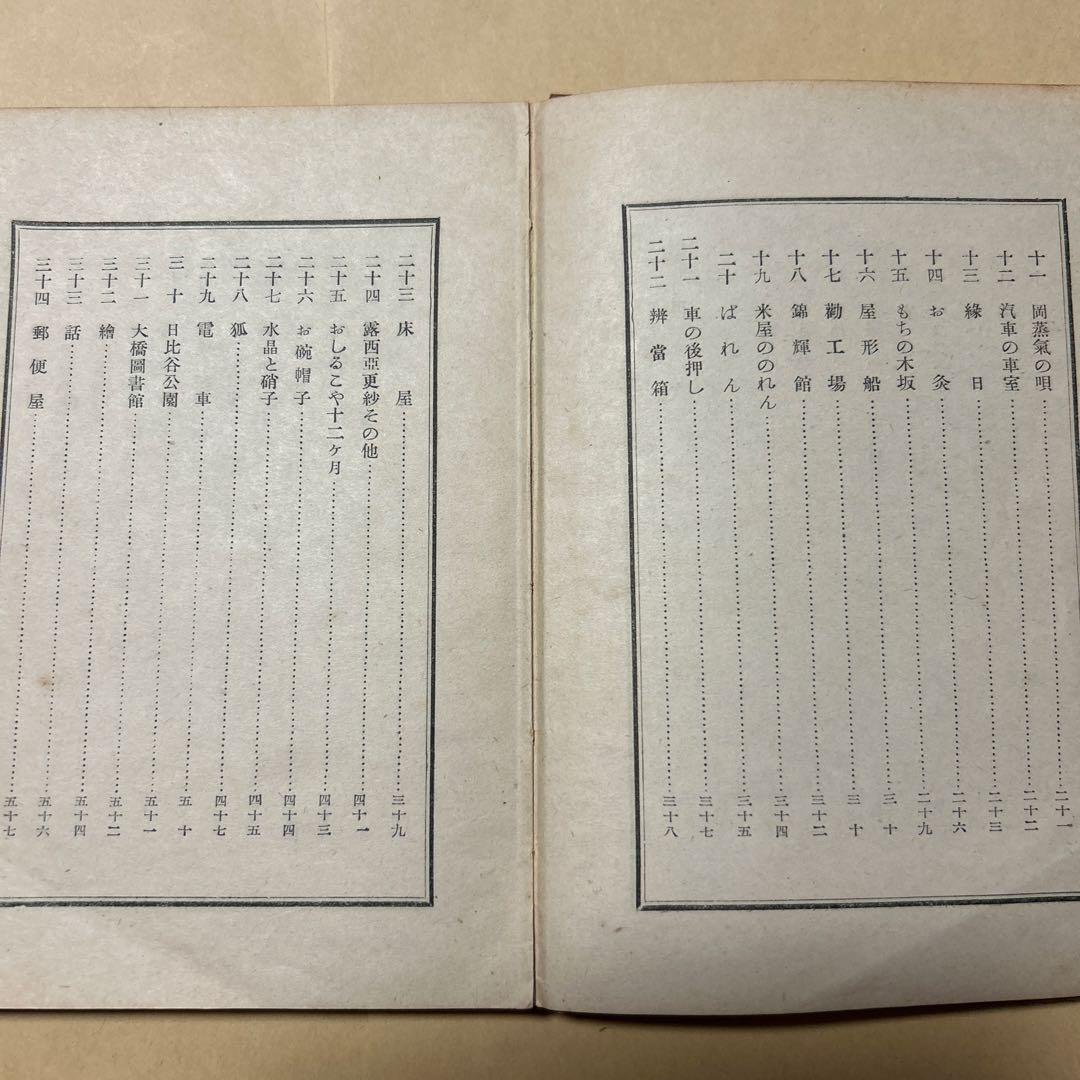 十一 岡蒸氣の唄……二十一
十二 汽車の車室……二十二
十三 緣日……二十三
十四 お灸……二十六
十五 もちの木坂……二十九
十六 屋形船……三十
十七 勸工場……三十
十八 錦輝館……三十二
十九 米屋ののれん……三十四
二十 ばれん……三十五
二十一 車の後押し……三十七
二十二 辨當箱……三十八
二十三 床屋……三十九
二十四 露西亞更紗その他……四十一
二十五 おしるこや十二ヶ月……四十三
二十六 お碗帽子……四十四
二十七 水晶と硝子……四十五
二十八 狐……四十七
二十九 電車……五十
三十 日比谷公園……五十一
三十一 大橋圖書館……五十二
三十二 繪……五十四
三十三 話……五十六
三十四 郵便屋……五十七